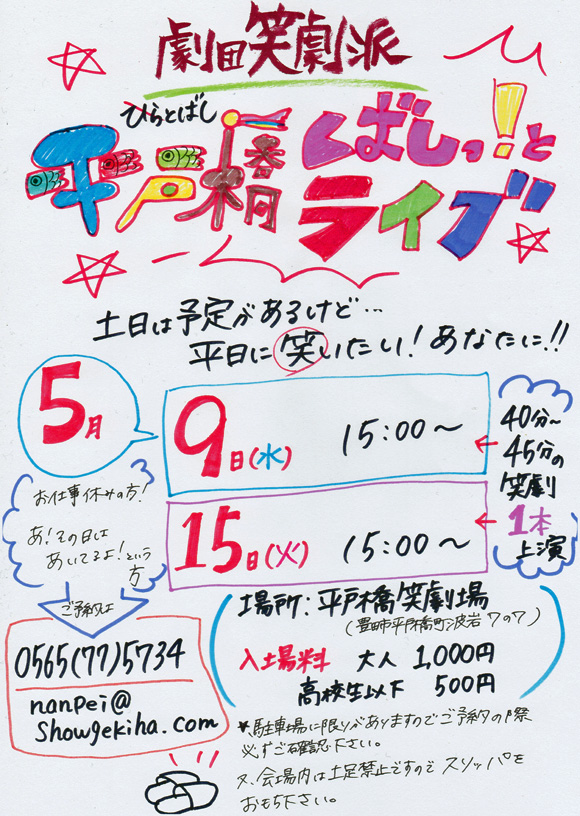 劇団笑劇派
ひらとばし
平戸橋くばしっ!と
ライブ
土日は予定があるけど…
平日に笑いたい!あなたに!!
5月
9日(水) 15:00〜
15日(火) 15:00〜
40分〜
45分の
笑劇
1本
上演
お仕事休みの方!
あ!その日は
あいてるよ!という
方
ご予約は
0565(77)5734
nanpei@
showgekiha.com
場所:平戸橋笑劇場
(豊田市平戸橋町波岩7の7)
入場料 大人 1,000円
高校生以下 500円
*.駐車場に限りがありますのでご予約の際
必ずご確認下さい。
又、会場内は土足禁止ですのでスリッパを
おもち下さい。